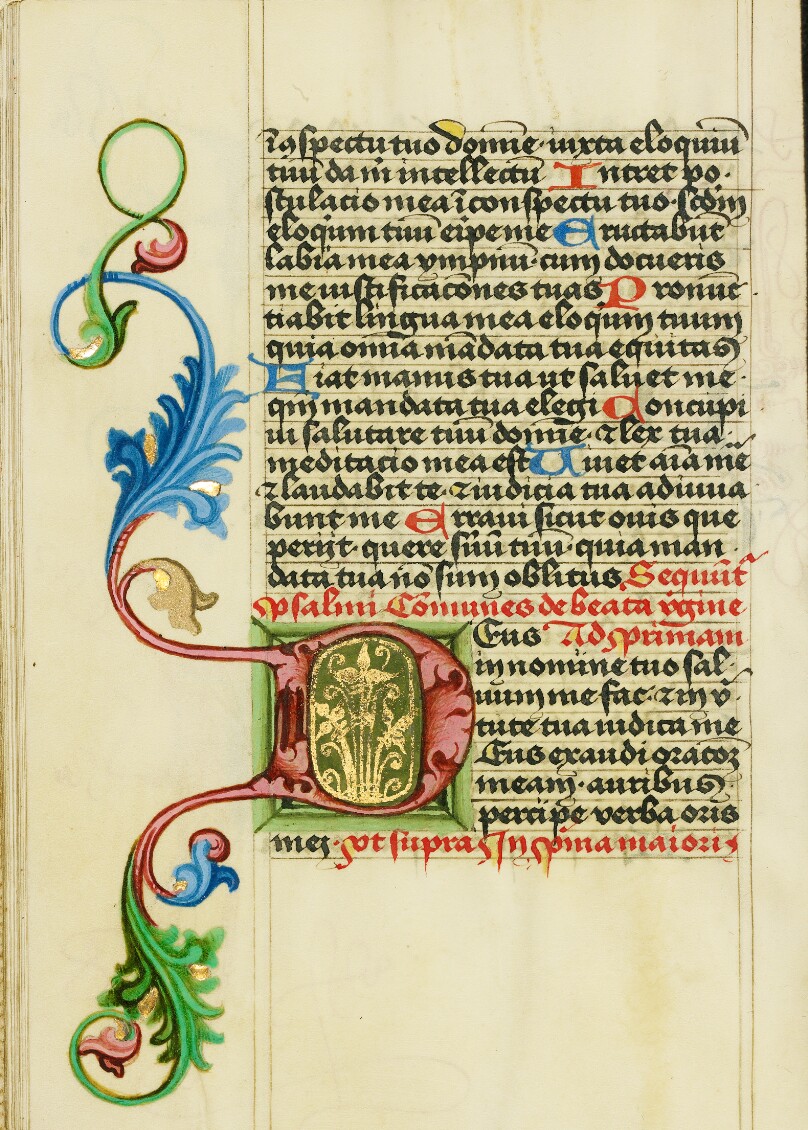 ī ɔspectu tuo domine · iuxta eloquiū
tuū da mi intellectū Intret po·
stulacio mea ī conspectu tuo · scd̄m
eloquium tuū eripe me Eructabūt
labia mea ympnū · cum docueris
me iustificacōnes tuas Pronūc
tiabit lingua mea eloquium tuum
quia omīa mādata tua equitas
Fiat manus tua ut saluet me ·
qm̄ mandata tua elegi Concupi
ui salutare tuū domine · ⁊ lex tua ·
meditacio mea est Uiuet aīa mea
⁊ laudabit te · ⁊ iudicia tua adiuua
bunt me Erraui sicut ouis que
perijt · quere seruū tuū · quia man ·
data tua nō sum oblitus Sequūt᷑
psalmi Cōmunes de beata v̾gine
Deus Ad primam
in nomine tuo sal·
uum me fac · ⁊ in v̾
tute tua iudica me
Deus exaudi oracōꝫ
meam · auribus
percipe verba oris
mei · vt supra In pͥma maiori